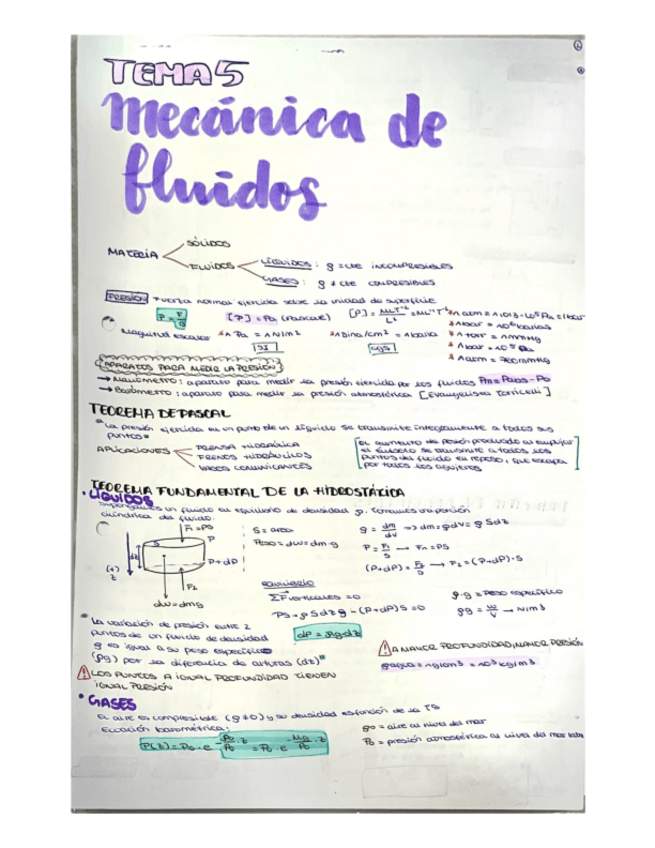 TEMA 5
Mecánica de
fluidos
MATERIA
SÓLIDOS
FLUIDOS
LÍQUIDOS: ρ = cte INCOMPRESIBLES
GASES: ρ ≠ cte COMPRESIBLES
PRESIÓN Fuerza normal ejercida sobre la unidad de superficie
P = F/S [P] = Pa (Pascal) [P] = MLT⁻²/L² = ML⁻¹T⁻²
Magnitud escalar * 1 Pa = 1 N/m² * 1 Dina/cm² = 1 baria
SI cgs
* 1 atm = 1,013·10⁵ Pa
* 1 bar = 10⁶ barias
* 1 torr = 1 mmHg
* 1 bar = 10⁵ Pa
* 1 atm = 760 mmHg
APARATOS PARA MEDIR LA PRESIÓN
→ Manómetro: aparato para medir la presión ejercida por los fluidos Pm = Pabs - P0
→ Barómetro: aparato para medir la presión atmosférica [Evangelista Torricelli]
TEOREMA DE PASCAL
"La presión ejercida en un punto de un líquido se transmite íntegramente a todos sus
puntos"
APLICACIONES
PRENSA HIDRÁULICA
FRENOS HIDRÁULICOS
VASOS COMUNICANTES
El aumento de presión producido al empujar
el émbolo se transmite a todos los
puntos del fluido en reposo, que escapa
por todos los agujeros
TEOREMA FUNDAMENTAL DE LA HIDROSTÁTICA
• LÍQUIDOS
un fluido en equilibrio de densidad ρ. Tomamos una porción
cilíndrica de fluido.
F1 = PS
S
P
dz
(+)
z
P+dP
F2
dw = dmg
S = área
Peso = dw = dm·g
ρ = dm/dV → dm = ρdV = ρSdz
P = F1/S → F1 = PS
(P+dP) = F2/S → F2 = (P+dP)·S
equilibrio
ΣF verticales = 0
PS + ρSdzg - (P+dP)S = 0
dP = ρgdz
ρ·g = Peso específico
ρg = w/V → N/m³
"La variación de presión entre 2
puntos de un fluido de densidad
ρ es igual a su peso específico
(ρg) por la diferencia de alturas (dz)"
LOS PUNTOS A IGUAL PROFUNDIDAD TIENEN
IGUAL PRESIÓN
A MAYOR PROFUNDIDAD, MAYOR PRESIÓN
ρagua = 1g/cm³ = 10³ kg/m³
• GASES
El aire es compresible (ρ≠0) y su densidad es función de la Tª
Ecuación barométrica:
ρ0 = aire al nivel del mar
P0 = presión atmosférica al nivel del mar